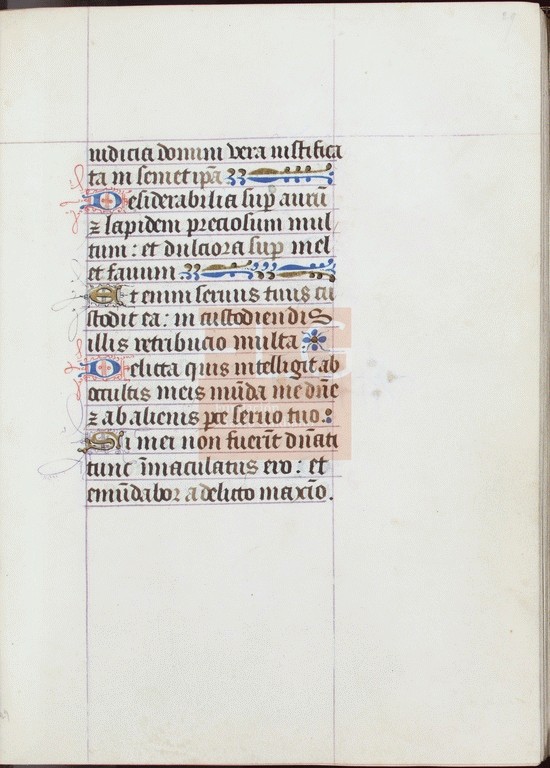 iudicia domini vera iustifica
ta in semet ip̃a
Desiderabilia sup̱ aurū
⁊ lapidem preciosum mul
tum : et dulciora sup̱ mel
et fauum
Et enim seruus tuus cu
stodit ea : in custodiendis
illis retribucio multa
Delicta quis intelligit ab
occultis meis mūda me dñe
⁊ ab alienis p̱ce seruo tuo :
Si mei non fuerīt dñati
tunc īmaculatus ero : et
emūdabor a delicto maxīo .